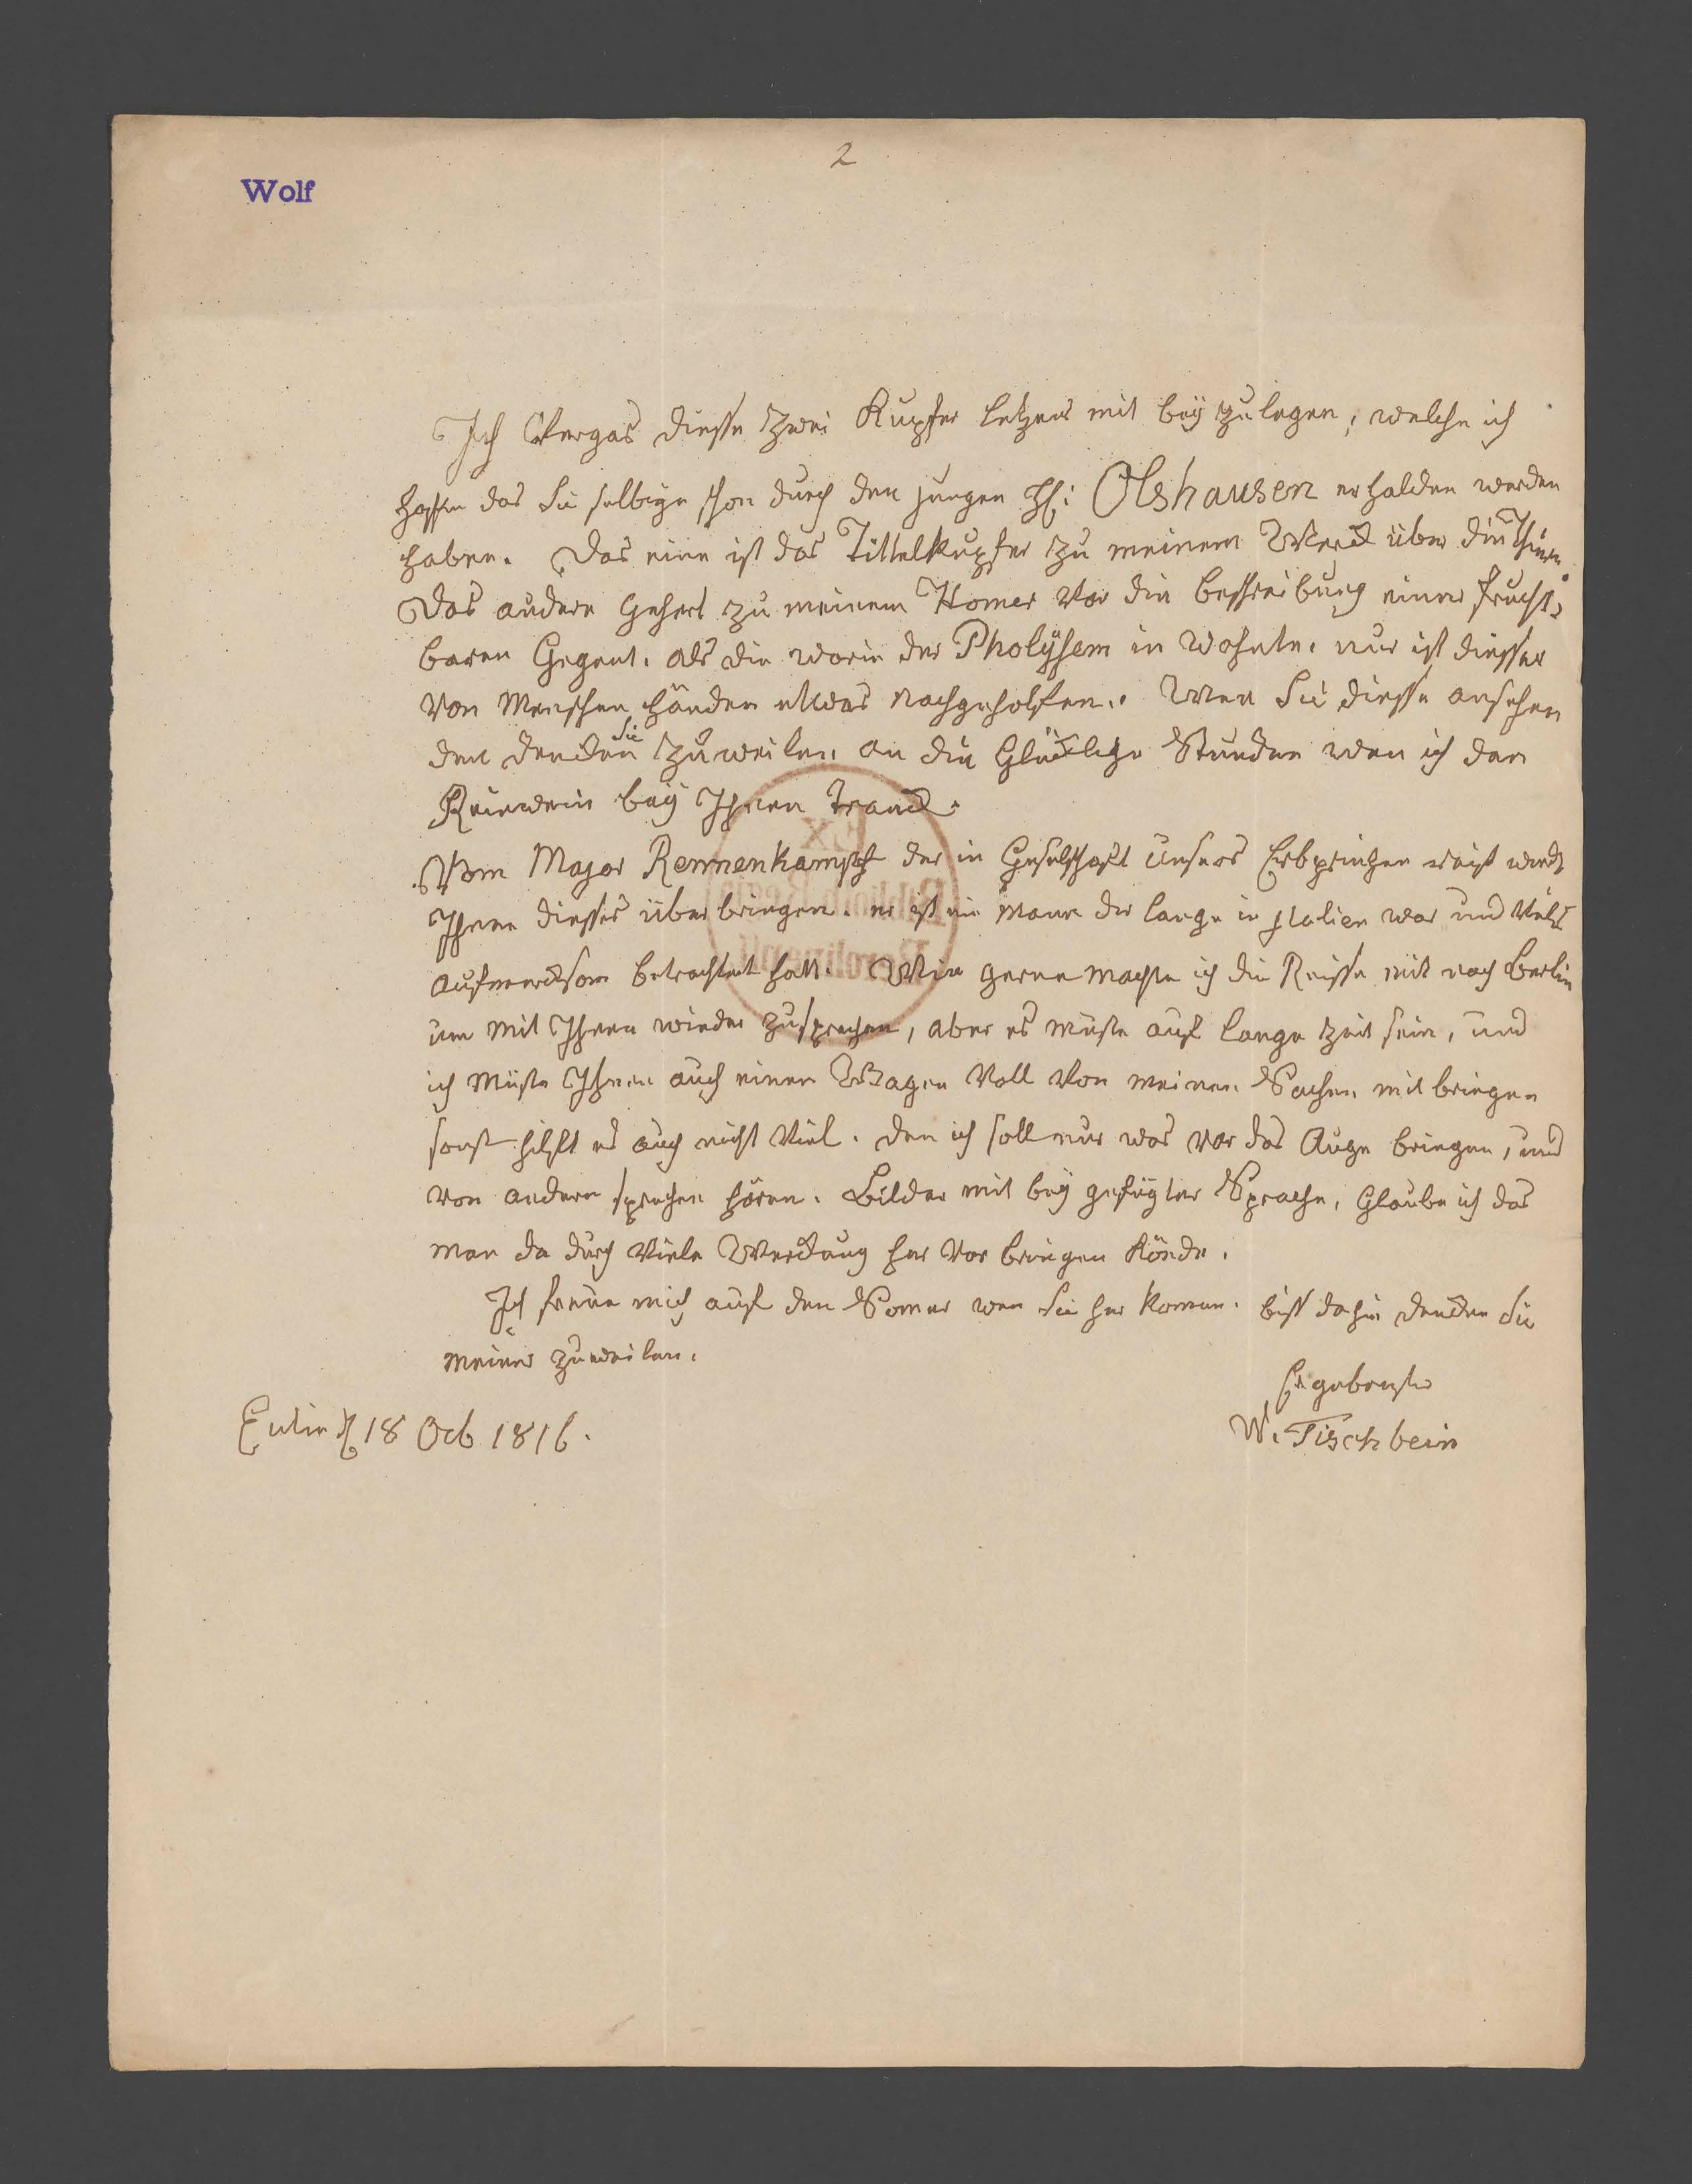 2
Wolf
Ich Vergas diesse zwei Kupfer letzens mit beÿ zulegen, welche ich
hoffe das Sie selbige schon durch den jungen H: Olshausen erhalden werden
haben. Das eine ist das Tittelkupfer zu meinem Werck über die Thiere.
Das andere Gehert zu meinem Homer vor die beschreibung einer frucht-
baren Gegent. als die worin der Pholÿfem in Wohnte. nur ist diesser
von Menschen händen etwas nachgeholfen. Wen Sie diesse ansehen
den dencken Sie zuweilen an die Glücklige Stunden wen ich den
Reinwein beÿ Ihnen tranck.
Vom Major Rennenkampf der in Geselschaft unsers Erbprinzen reist wird
Ihnen disses überbringen. er ist ein Mann der lange in Italien war und Viels
aufmercksam betrachtet hatt. Wie gerne machte ich die Reisse mit nach Berlin
um mit Ihnen wieder zusprechen, aber es müste auf lange Zeit sein, und
ich müste Ihnen auch einen Wagen Voll von meinen Sachen mit bringen
sonst hilft es auch nicht Viel. den ich soll nur was vor das Auge bringen, und
von andern sprechen hören. Bilder mit beÿ gefügter Sprache, Glaube ich das
man da durch Viele Werckung her vor bringen Könde.
Ich freue mich auf den Somer wen Sie her komen. biss dahin dencken Sie
meiner zuweilen.
Ergebenster
Eutin d 18 Ocb 1816.
W. Tischbein
Ex
Biblioth. Regia
Berolinensi.